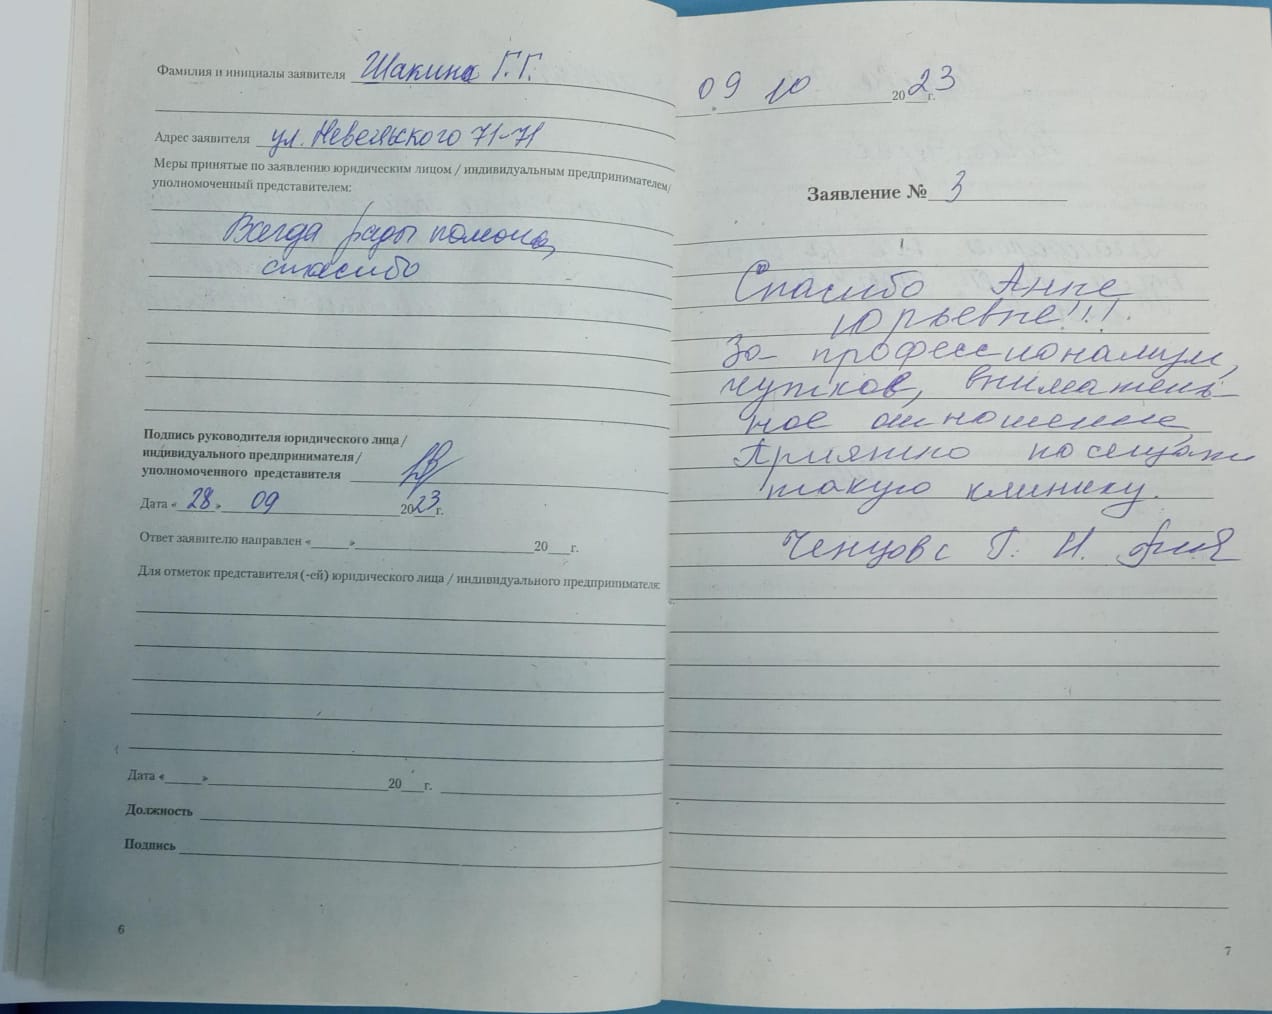 Фамилия и инициалы заявителя Шакина Г.Г.
Адрес заявителя ул. Невельского 71-71
Меры принятые по заявлению юридическим лицом / индивидуальным предпринимателем/
уполномоченный представителем:
Всегда рады помочь,
спасибо
Подпись руководителя юридического лица/
индивидуального предпринимателя/
уполномоченного представителя
Дата «28» 09 2023 г.
Ответ заявителю направлен «___» 20___г.
Для отметок представителя (-ей) юридического лица / индивидуального предпринимателя:
Дата «___» 20___г.
Должность
Подпись
6
09 » 10 2023 г.
Заявление № 3
Спасибо Анне
Юрьевне!!!
За профессионализм,
чуткое, вниматель-
ное отношение,
Приятно посещать
такую клинику.
Ченцова Г. И.
7